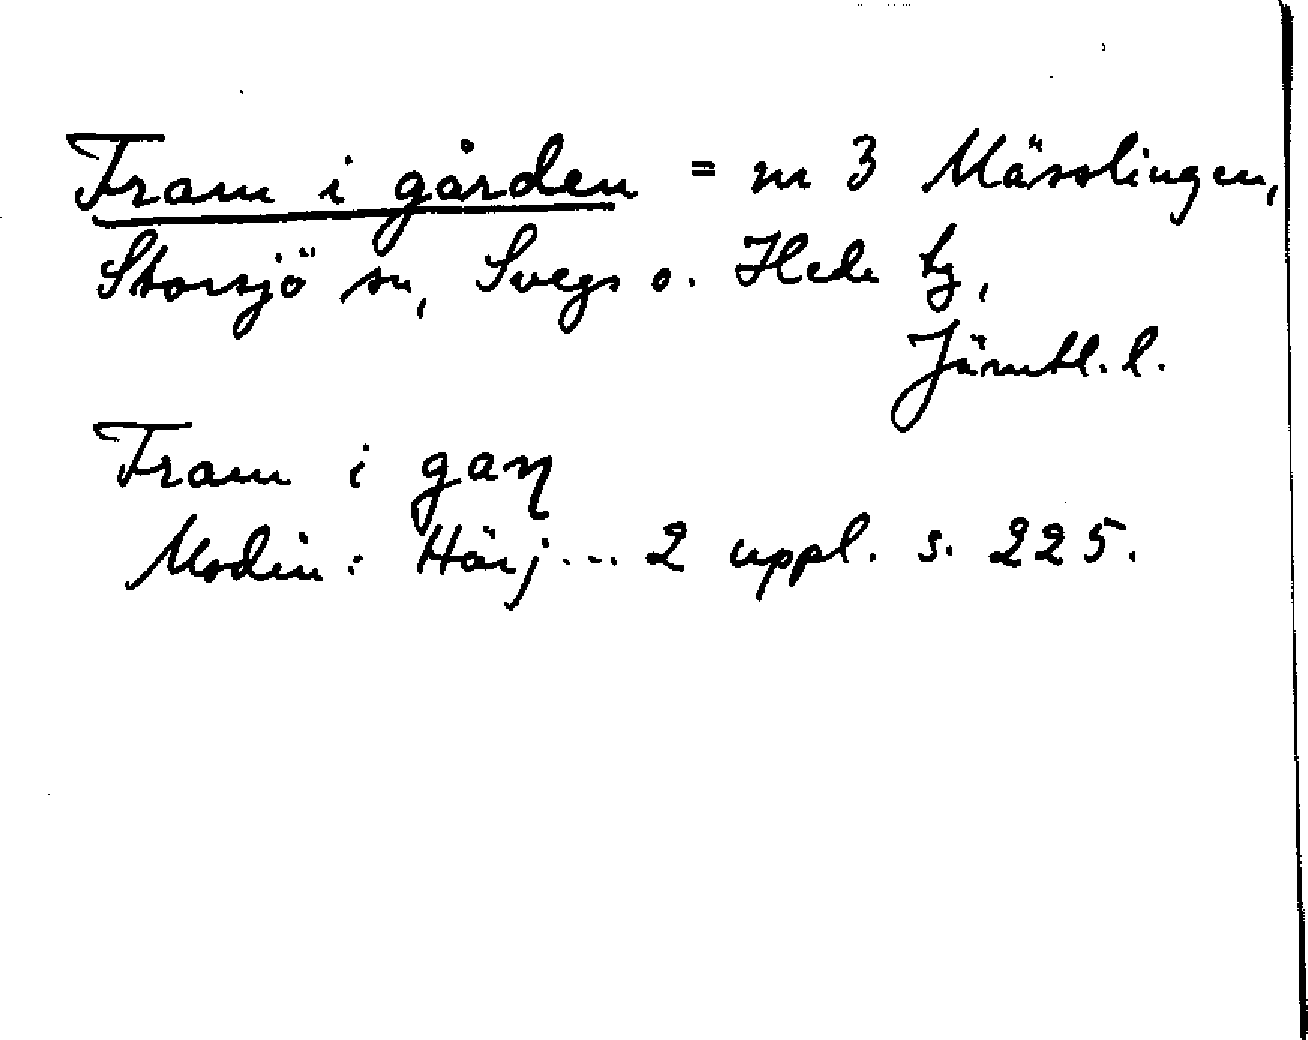 Fram i gården = nr 3 Mässlingen,
Storsjö sn, Svegs o. Hede tg,
Jämtl. l.
Fram i gaɳ
Modin: Härj... 2 uppl. s. 225.